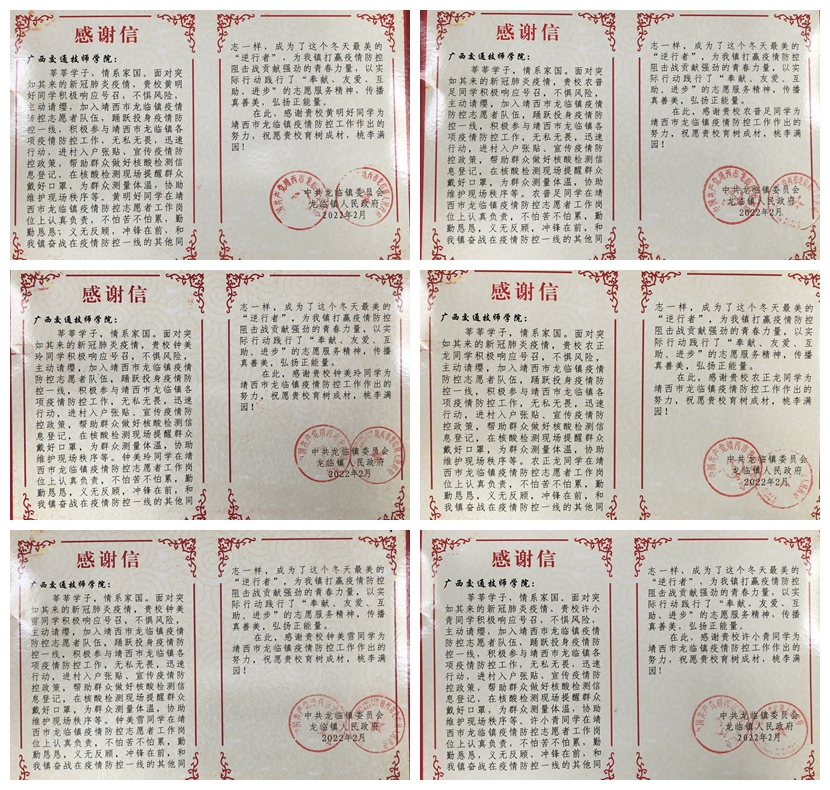 感谢信
广西交通技师学院：
莘莘学子，情系家国。面对突
如其来的新冠肺炎疫情，贵校黄明
好同学积极响应号召，不惧风险，
主动请缨，加入靖西市龙临镇疫情
防控志愿者队伍，踊跃投身疫情防
控一线，积极参与靖西市龙临镇各
项疫情防控工作，无私无畏，迅速
行动，进村入户张贴、宣传疫情防
控政策，帮助群众做好核酸检测信
息登记，在核酸检测现场提醒群众
戴好口罩，为群众测量体温，协助
维护现场秩序等。黄明好同学在靖
西市龙临镇疫情防控志愿者工作岗
位上认真负责，不怕苦不怕累，勤
勤恳恳；义无反顾，冲锋在前，和
我镇奋战在疫情防控一线的其他同
志一样，成为了这个冬天最美的
“逆行者”，为我镇打赢疫情防控
阻击战贡献强劲的青春力量，以实
际行动践行了“奉献、友爱、互
助、进步”的志愿服务精神，传播
真善美，弘扬正能量。
在此，感谢贵校黄明好同学为
靖西市龙临镇疫情防控工作作出的
努力，祝愿贵校育树成材，桃李满
园！
中共龙临镇委员会
龙临镇人民政府
2022年2月
感谢信
广西交通技师学院：
莘莘学子，情系家国。面对突
如其来的新冠肺炎疫情，贵校农普
足同学积极响应号召，不惧风险，
主动请缨，加入靖西市龙临镇疫情
防控志愿者队伍，踊跃投身疫情防
控一线，积极参与靖西市龙临镇各
项疫情防控工作，无私无畏，迅速
行动，进村入户张贴、宣传疫情防
控政策，帮助群众做好核酸检测信
息登记，在核酸检测现场提醒群众
戴好口罩，为群众测量体温，协助
维护现场秩序等。农普足同学在靖
西市龙临镇疫情防控志愿者工作岗
位上认真负责，不怕苦不怕累，勤
勤恳恳，义无反顾，冲锋在前，和
我镇奋战在疫情防控一线的其他同
志一样，成为了这个冬天最美的
“逆行者”，为我镇打赢疫情防控
阻击战贡献强劲的青春力量，以实
际行动践行了“奉献、友爱、互
助、进步”的志愿服务精神，传播
真善美，弘扬正能量。
在此，感谢贵校农普足同学为
靖西市龙临镇疫情防控工作作出的
努力，祝愿贵校育树成材，桃李满
园！
中共龙临镇委员会
龙临镇人民政府
2022年2月
感谢信
广西交通技师学院：
莘莘学子，情系家国。面对突
如其来的新冠肺炎疫情，贵校钟美
玲同学积极响应号召，不惧风险，
主动请缨，加入靖西市龙临镇疫情
防控志愿者队伍，踊跃投身疫情防
控一线，积极参与靖西市龙临镇各
项疫情防控工作，无私无畏，迅速
行动，进村入户张贴、宣传疫情防
控政策，帮助群众做好核酸检测信
息登记，在核酸检测现场提醒群众
戴好口罩，为群众测量体温，协助
维护现场秩序等。钟美玲同学在靖
西市龙临镇疫情防控志愿者工作岗
位上认真负责，不怕苦不怕累，勤
勤恳恳，义无反顾，冲锋在前，和
我镇奋战在疫情防控一线的其他同
志一样，成为了这个冬天最美的
“逆行者”，为我镇打赢疫情防控
阻击战贡献强劲的青春力量，以实
际行动践行了“奉献、友爱、互
助、进步”的志愿服务精神，传播
真善美，弘扬正能量。
在此，感谢贵校钟美玲同学为
靖西市龙临镇疫情防控工作作出的
努力，祝愿贵校育树成材，桃李满
园！
中共龙临镇委员会
龙临镇人民政府
2022年2月
感谢信
广西交通技师学院：
莘莘学子，情系家国。面对突
如其来的新冠肺炎疫情，贵校农正
龙同学积极响应号召，不惧风险，
主动请缨，加入靖西市龙临镇疫情
防控志愿者队伍，踊跃投身疫情防
控一线，积极参与靖西市龙临镇各
项疫情防控工作，无私无畏，迅速
行动，进村入户张贴、宣传疫情防
控政策，帮助群众做好核酸检测信
息登记，在核酸检测现场提醒群众
戴好口罩，为群众测量体温，协助
维护现场秩序等。农正龙同学在靖
西市龙临镇疫情防控志愿者工作岗
位上认真负责，不怕苦不怕累，勤
勤恳恳，义无反顾，冲锋在前，和
我镇奋战在疫情防控一线的其他同
志一样，成为了这个冬天最美的
“逆行者”，为我镇打赢疫情防控
阻击战贡献强劲的青春力量，以实
际行动践行了“奉献、友爱、互
助、进步”的志愿服务精神，传播
真善美，弘扬正能量。
在此，感谢贵校农正龙同学为
靖西市龙临镇疫情防控工作作出的
努力，祝愿贵校育树成材，桃李满
园！
中共龙临镇委员会
龙临镇人民政府
2022年2月
感谢信
广西交通技师学院：
莘莘学子，情系家国。面对突
如其来的新冠肺炎疫情，贵校钟美
雪同学积极响应号召，不惧风险，
主动请缨，加入靖西市龙临镇疫情
防控志愿者队伍，踊跃投身疫情防
控一线，积极参与靖西市龙临镇各
项疫情防控工作，无私无畏，迅速
行动，进村入户张贴、宣传疫情防
控政策，帮助群众做好核酸检测信
息登记，在核酸检测现场提醒群众
戴好口罩，为群众测量体温，协助
维护现场秩序等。钟美雪同学在靖
西市龙临镇疫情防控志愿者工作岗
位上认真负责，不怕苦不怕累，勤
勤恳恳，义无反顾，冲锋在前，和
我镇奋战在疫情防控一线的其他同
志一样，成为了这个冬天最美的
“逆行者”，为我镇打赢疫情防控
阻击战贡献强劲的青春力量，以实
际行动践行了“奉献、友爱、互
助、进步”的志愿服务精神，传播
真善美，弘扬正能量。
在此，感谢贵校钟美雪同学为
靖西市龙临镇疫情防控工作作出的
努力，祝愿贵校育树成材，桃李满
园！
中共龙临镇委员会
龙临镇人民政府
2022年2月
感谢信
广西交通技师学院：
莘莘学子，情系家国。面对突
如其来的新冠肺炎疫情，贵校许小
青同学积极响应号召，不惧风险，
主动请缨，加入靖西市龙临镇疫情
防控志愿者队伍，踊跃投身疫情防
控一线，积极参与靖西市龙临镇各
项疫情防控工作，无私无畏，迅速
行动，进村入户张贴、宣传疫情防
控政策，帮助群众做好核酸检测信
息登记，在核酸检测现场提醒群众
戴好口罩，为群众测量体温，协助
维护现场秩序等。许小青同学在靖
西市龙临镇疫情防控志愿者工作岗
位上认真负责，不怕苦不怕累，勤
勤恳恳，义无反顾，冲锋在前，和
我镇奋战在疫情防控一线的其他同
志一样，成为了这个冬天最美的
“逆行者”，为我镇打赢疫情防控
阻击战贡献强劲的青春力量，以实
际行动践行了“奉献、友爱、互
助、进步”的志愿服务精神，传播
真善美，弘扬正能量。
在此，感谢贵校许小青同学为
靖西市龙临镇疫情防控工作作出的
努力，祝愿贵校育树成材，桃李满
园！
中共龙临镇委员会
龙临镇人民政府
2022年2月